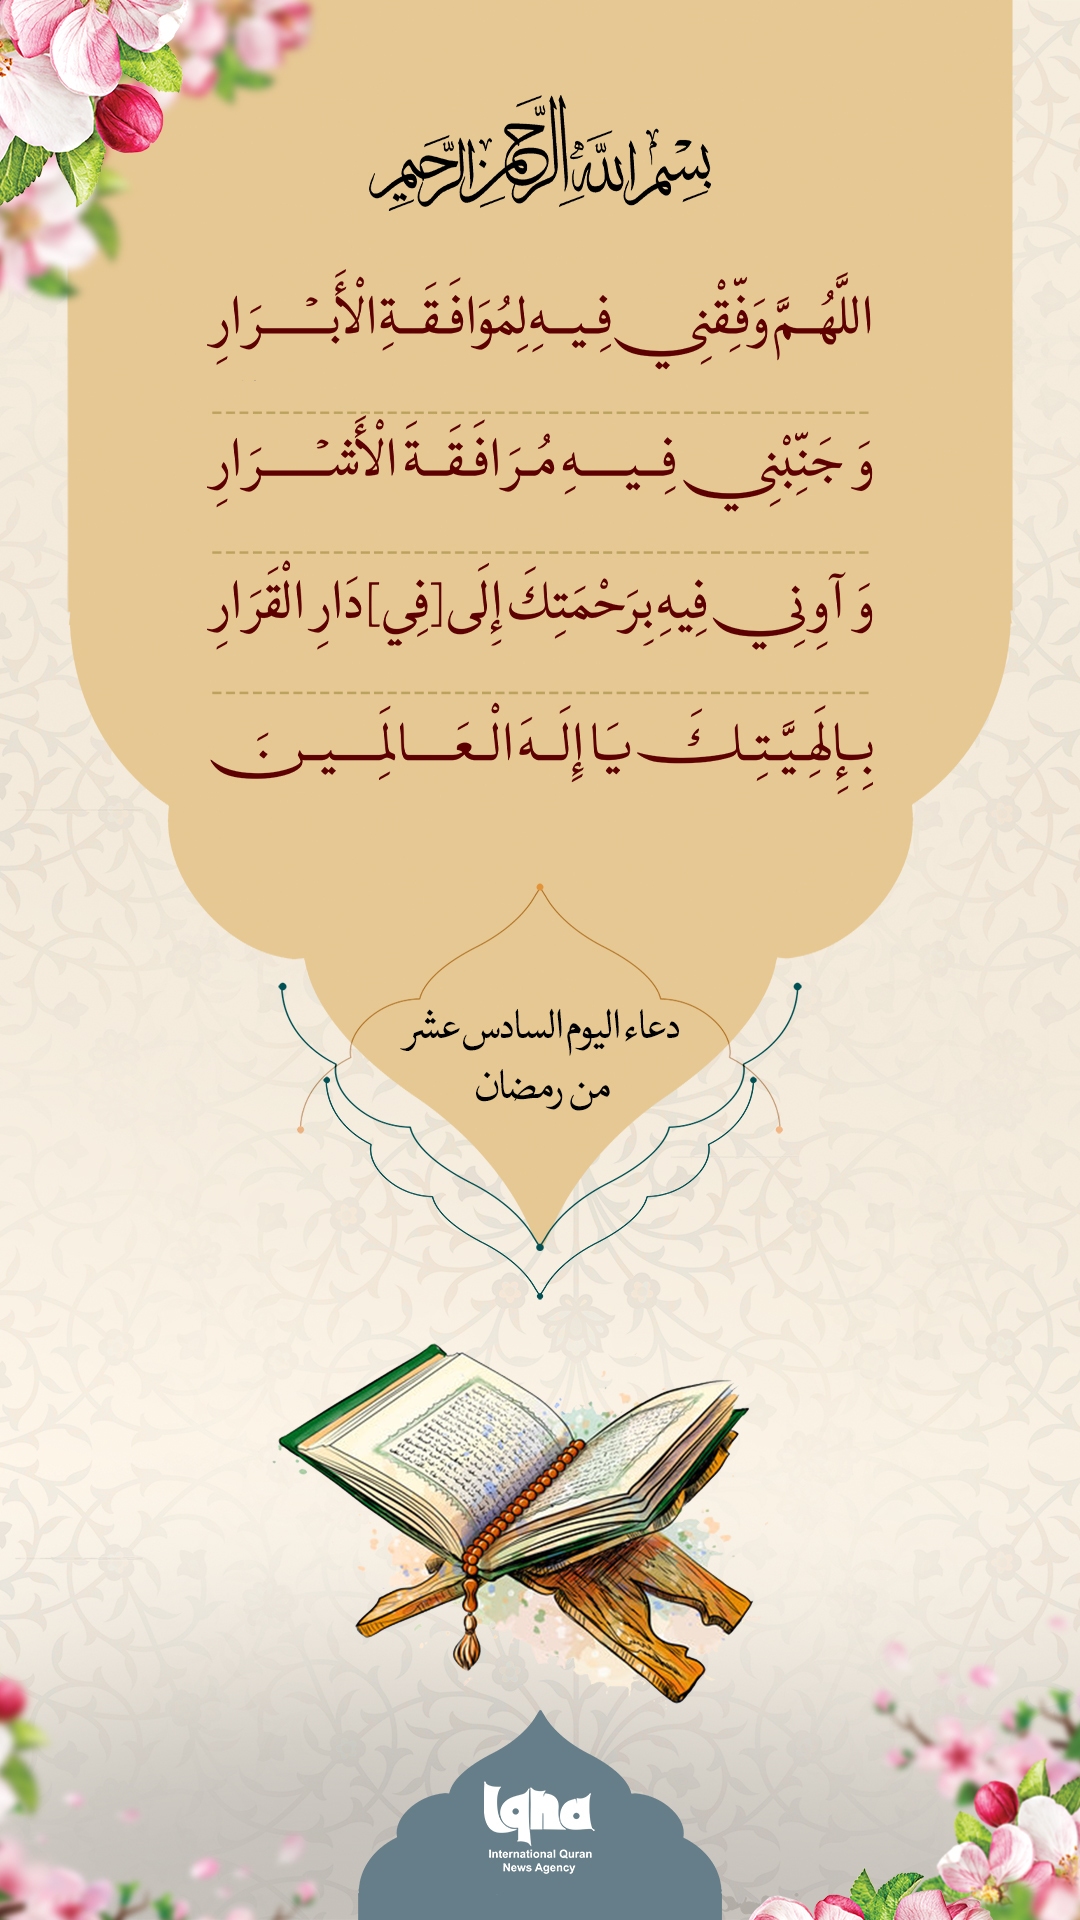 بِسْمِ اللَّهِ الرَّحْمَنِ الرَّحِيمِ
اللَّهُمَّ وَفِّقْنِي فِيهِ لِمُوَافَقَةِ الْأَبْرَارِ
وَ جَنِّبْنِي فِيهِ مُرَافَقَةَ الْأَشْرَارِ
وَ آوِنِي فِيهِ بِرَحْمَتِكَ إِلَى [فِي] دَارِ الْقَرَارِ
بِإِلَهِيَّتِكَ يَا إِلَهَ الْعَالَمِينَ
دعاء اليوم السادس عشر
من رمضان
Iqna
International Quran
News Agency